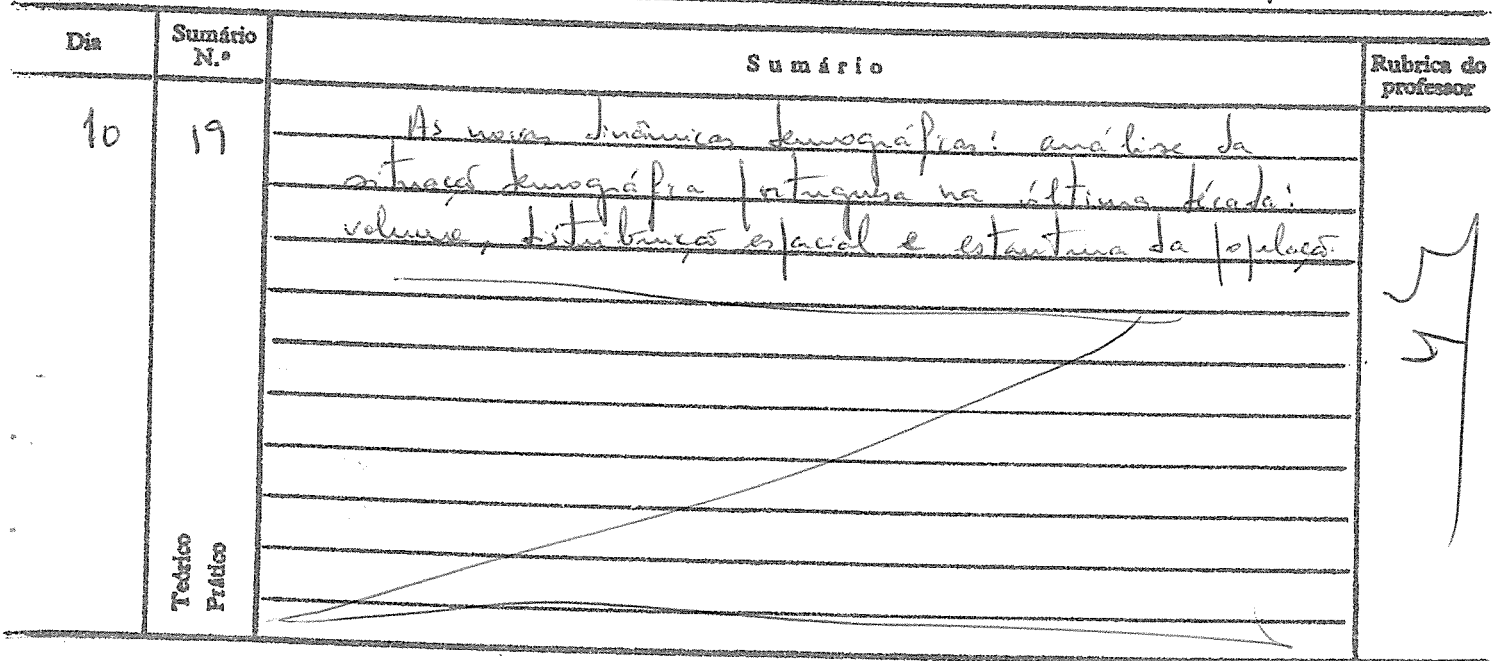 Dia Sumário N.º Sumário Rubrica do professor
10 19 As novas dinâmicas demográficas: análise da
situação demográfica portuguesa na última década:
volume, distribuição espacial e estrutura da população.
Teórico
Prático